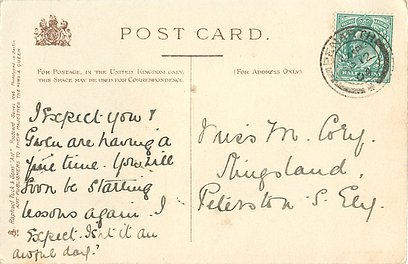 POST CARD.
FOR POSTAGE, IN THE UNITED KINGDOM ONLY,
THIS SPACE MAY BE USED FOR CORRESPONDENCE.
(FOR ADDRESS ONLY)
I expect you &
Gwen are having a
fine time. You will
soon be starting
lessons again. I
Expect. Isn't it an
awful day?
Miss M. Cory.
Kingsland,
Peterston S. Ely.
Raphael Tuck & Sons'
ART PUBLISHERS TO THEIR MAJESTIES THE KING & QUEEN